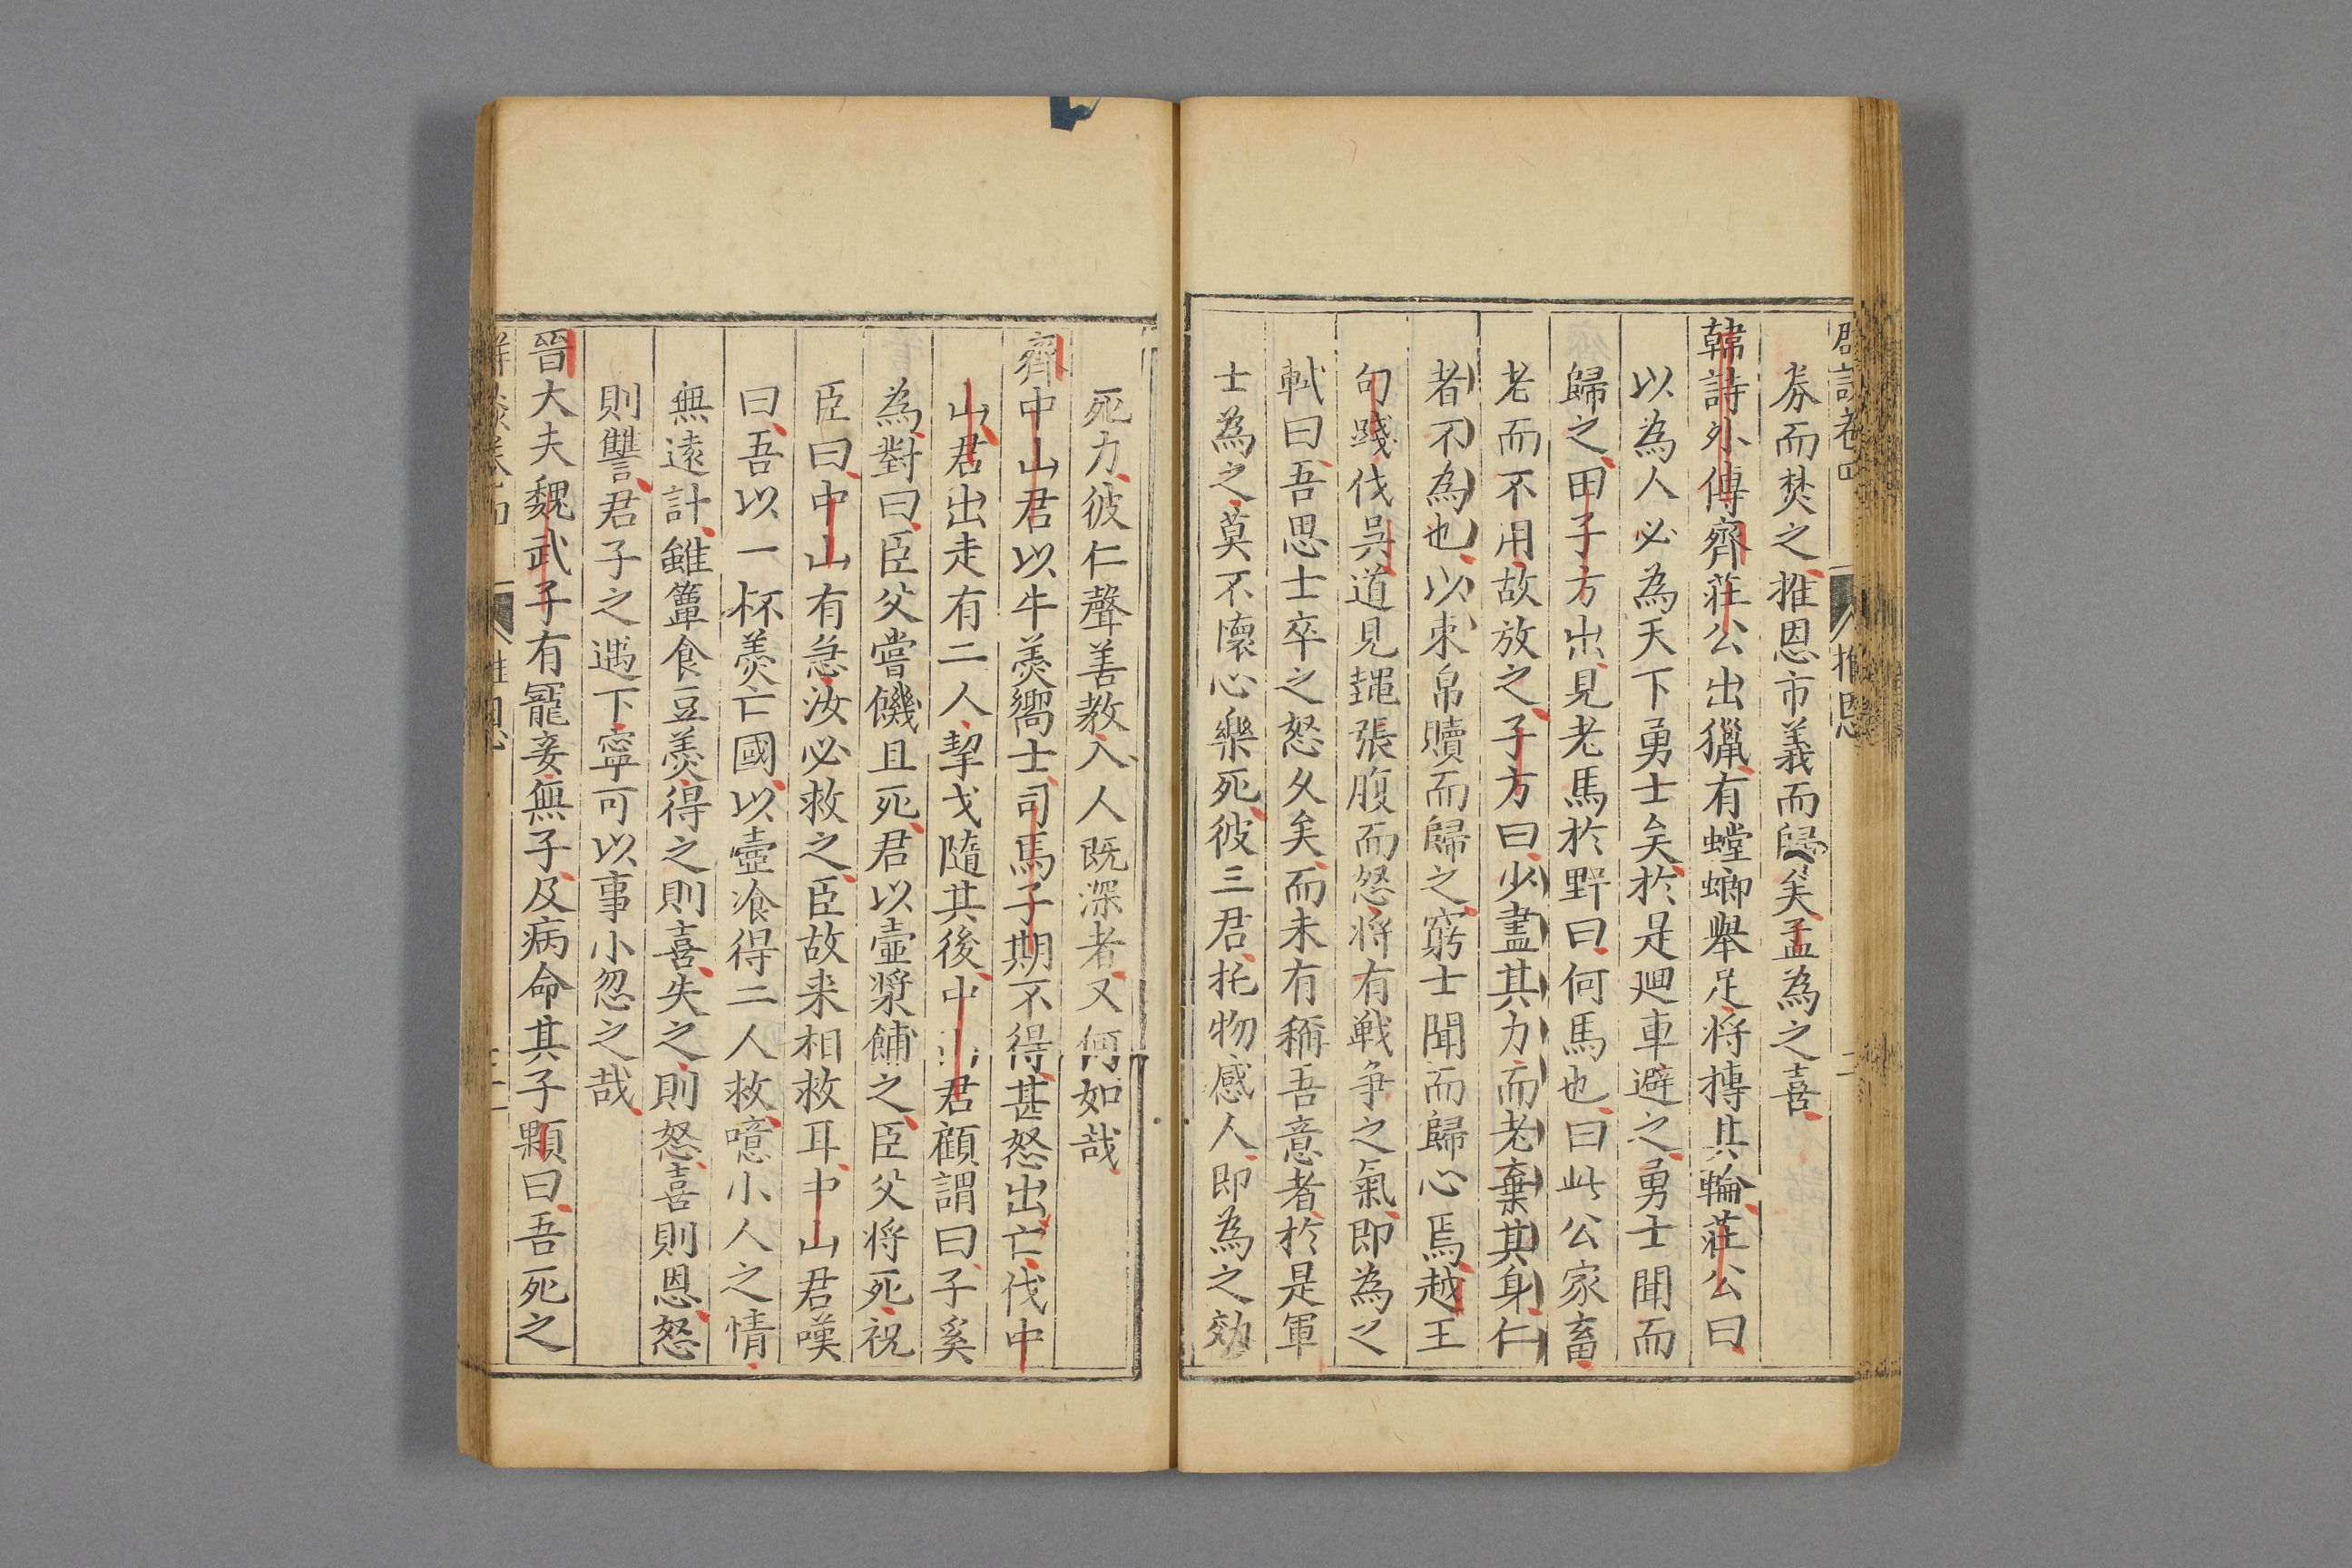 群談卷四 推恩 二
券而焚之推恩市義而歸矣孟為之喜
韓詩外傳齊莊公出獵有螳螂舉足将摶其輪莊公曰
以為人必為天下勇士矣於是廻車避之勇士聞而
歸之田子方出見老馬於野曰何馬也曰此公家畜
老而不用故放之子方曰少盡其力而老棄其身仁
者不為也以束帛贖而歸之窮士聞而歸心焉越王
句踐伐吳道見䵷張腹而怒将有戦爭之氣即為之
軾曰吾思士卒之怒久矣而未有稱吾意者於是軍
士為之莫不懷心樂死彼三君托物感人即為之効
死力彼仁聲善教入人既深者又何如哉
齊中山君以牛羮嚮士司馬子期不得甚怒出亡伐中
山君出走有二人挈戈隨其後中山君顧謂曰子奚
為對曰臣父嘗饑且死君以壺漿餔之臣父将死祝
臣曰中山有急汝必救之臣故来相救耳中山君嘆
曰吾以一杯羮亡國以壷飡得二人救噫小人之情
無遠計雖簞食豆羮得之則喜失之則怒喜則恩怒
則讐君子之遇下寧可以事小忽之哉
晉大夫魏武子有寵妾無子及病命其子顆曰吾死之